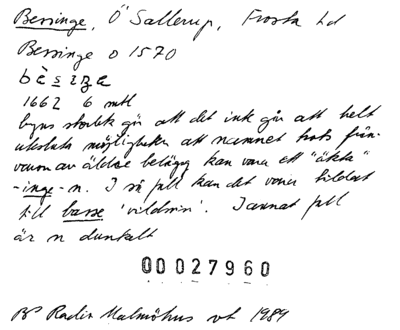 Bessinge, Ö Sallerup, Frosta hd
Bessinge o 1570
bèsıŋe
1662 6 mtl
byns storlek gör att det ink går att helt
utesluta möjligheten att namnet trots från-
varon av äldre belägg kan vara ett "äkta"
-inge-n. I så fall kan det vara bildat
till basse 'vildsvin'. I annat fall
är n dunkelt
00027960
BP Radio Malmöhus vt 1989